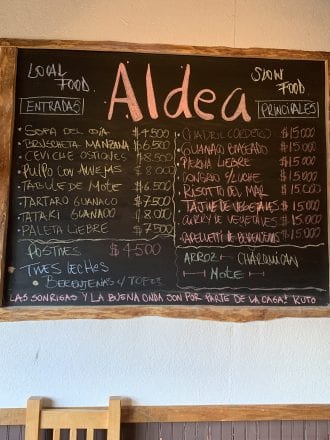 LOCAL FOOD
Aldea
SLOW FOOD
ENTRADAS
• SOPA DEL DÍA $4.500
• BRUSCHETA MANZANA $6.500
• CEVICHE OSTIONES $8.500
• PULPO CON $8.000
• TABULE DE MOTE $6.500
• TARTARO GUANACO $7.500
• TATAKI GUANACO $8.000
• PALETA LIEBRE $7.500
POSTRES $4.500
TRES LECHES
• BERENJENAS
PRINCIPALES
CUADRIL CORDERO $15.000
GUANACO $15.000
PIERNA LIEBRE $15.000
CONGRIO $15.000
RISOTTO DEL MAR $15.000
TAJINE DE VEGETALES $15.000
CURRY DE VEGETALES $15.000
DE BERENJENAS $15.000
ARROZ CHARQUICAN
MOTE
LAS SONRISAS Y LA BUENA ONDA SON POR PARTE DE LA CASA!